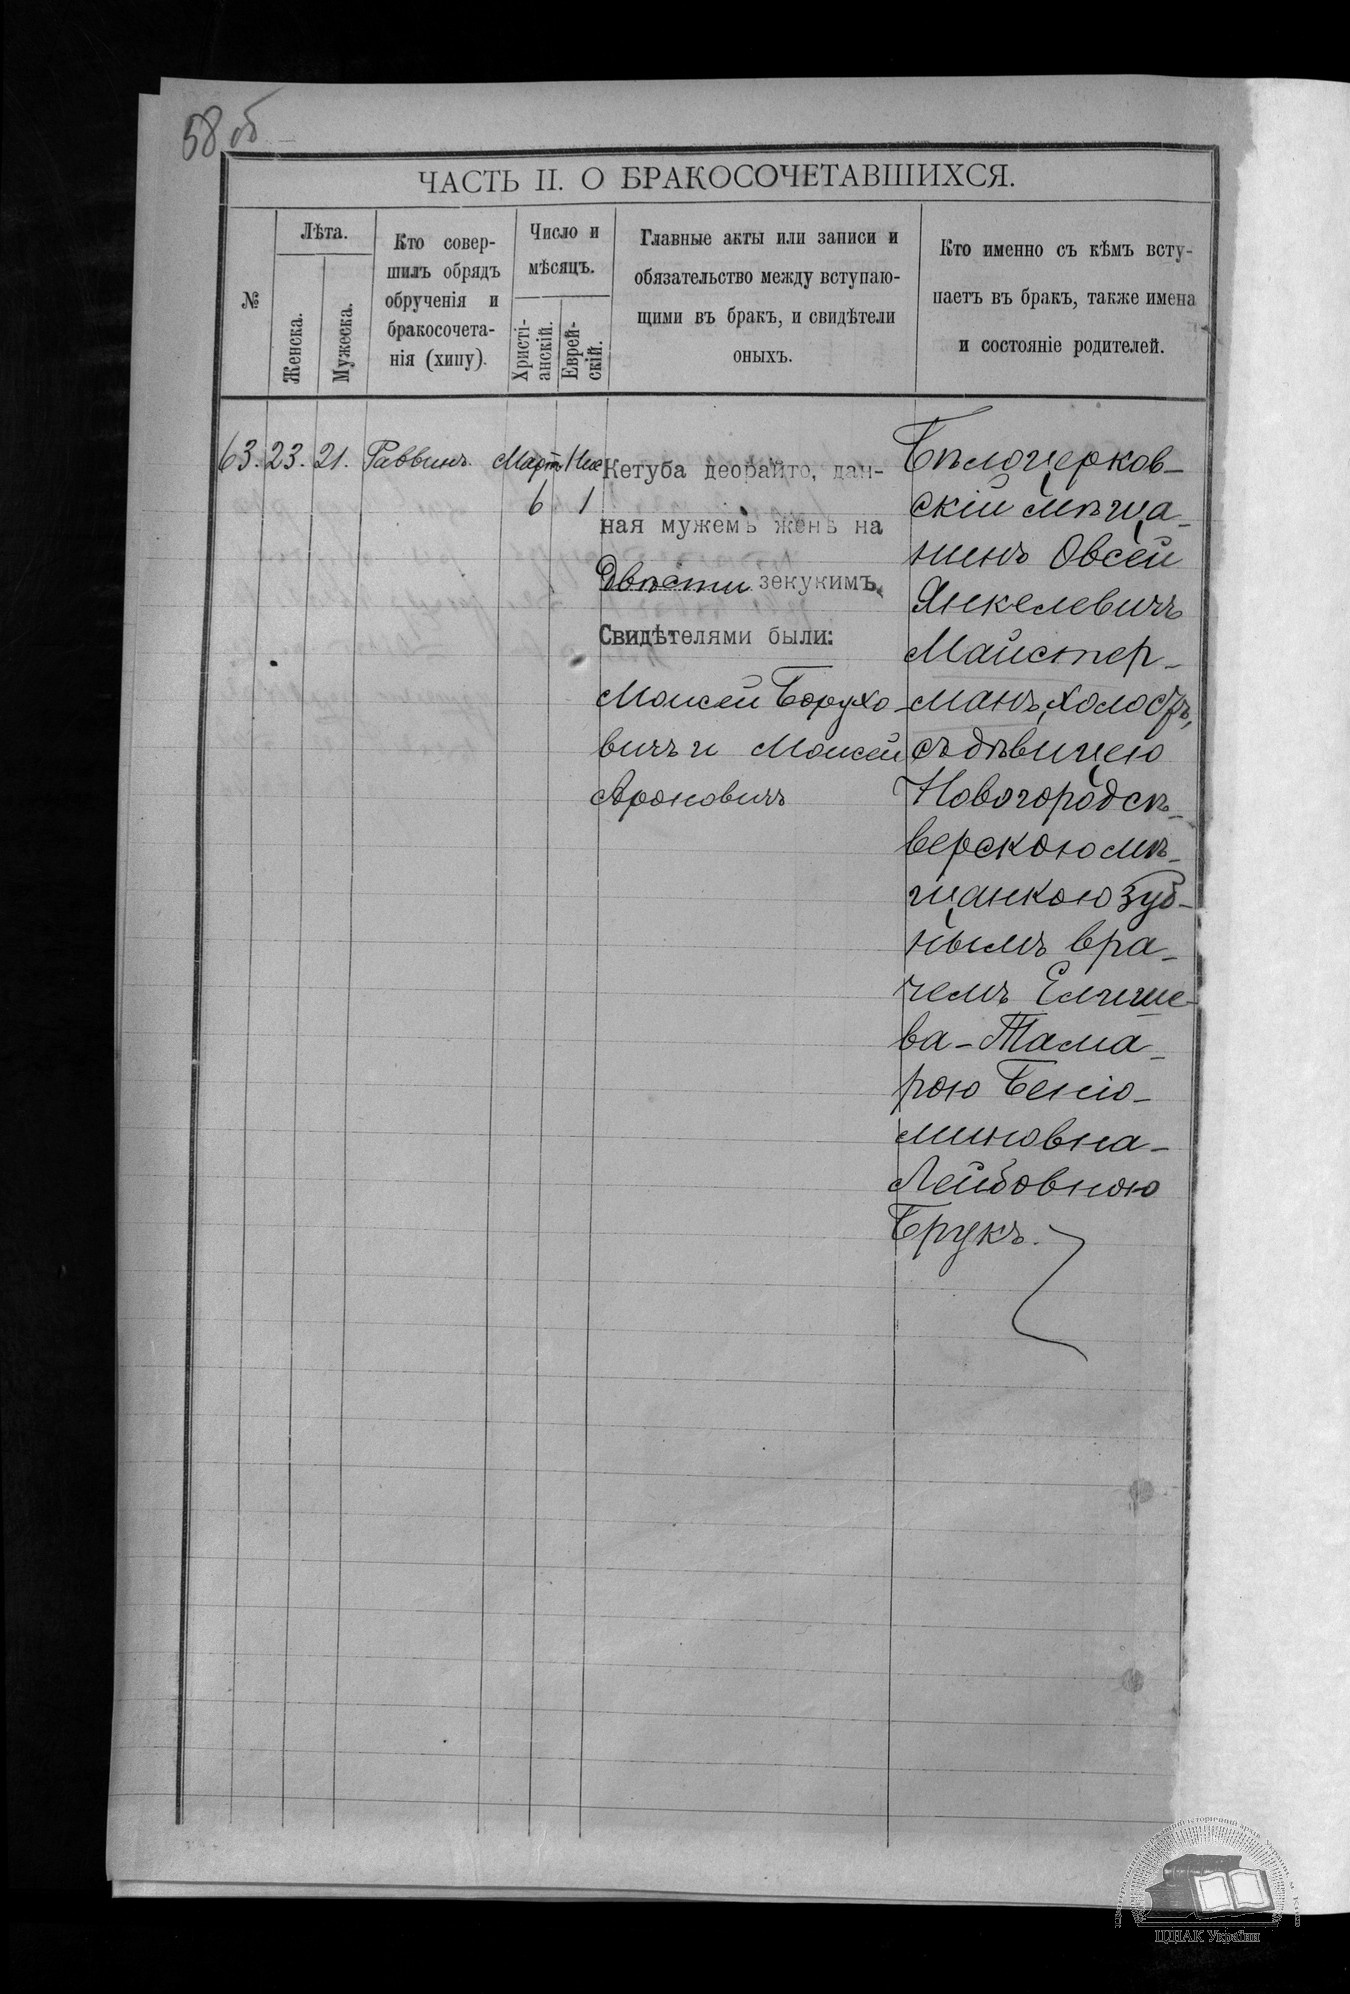 58 об
ЧАСТЬ II. О БРАКОСОЧЕТАВШИХСЯ.
№
Лѣта.
Женска.
Мужеска.
Кто совер-
шилъ обрядъ
обрученія и
бракосочета-
нія (хипу).
Число и
мѣсяцъ.
Христі-
анскій.
Еврей-
скій.
Главные акты или записи и
обязательство между вступаю-
щими въ бракъ, и свидѣтели
оныхъ.
Кто именно съ кѣмъ всту-
паетъ въ бракъ, также имена
и состояніе родителей.
63. 23. 21. Раввинъ. Мартъ
6 1
Кетуба деорайто, дан-
ная мужемъ женѣ на
Двѣсти зекукимъ.
Свидѣтелями были:
Моисей Борухо-
вичъ и Моисей
Ароновичъ
Бѣлоцерков-
скій мѣща-
нинъ Овсей
Янкелевичъ
Майстер-
манъ, холостъ,
съ дѣвицею
Новгородсѣ-
верскою мѣ-
щанкою Зуб-
нымъ вра-
чемъ Елише-
ва-Тама-
рою Беніо-
миновна-
Лейбовною
Брукъ.
ЦДІАК України